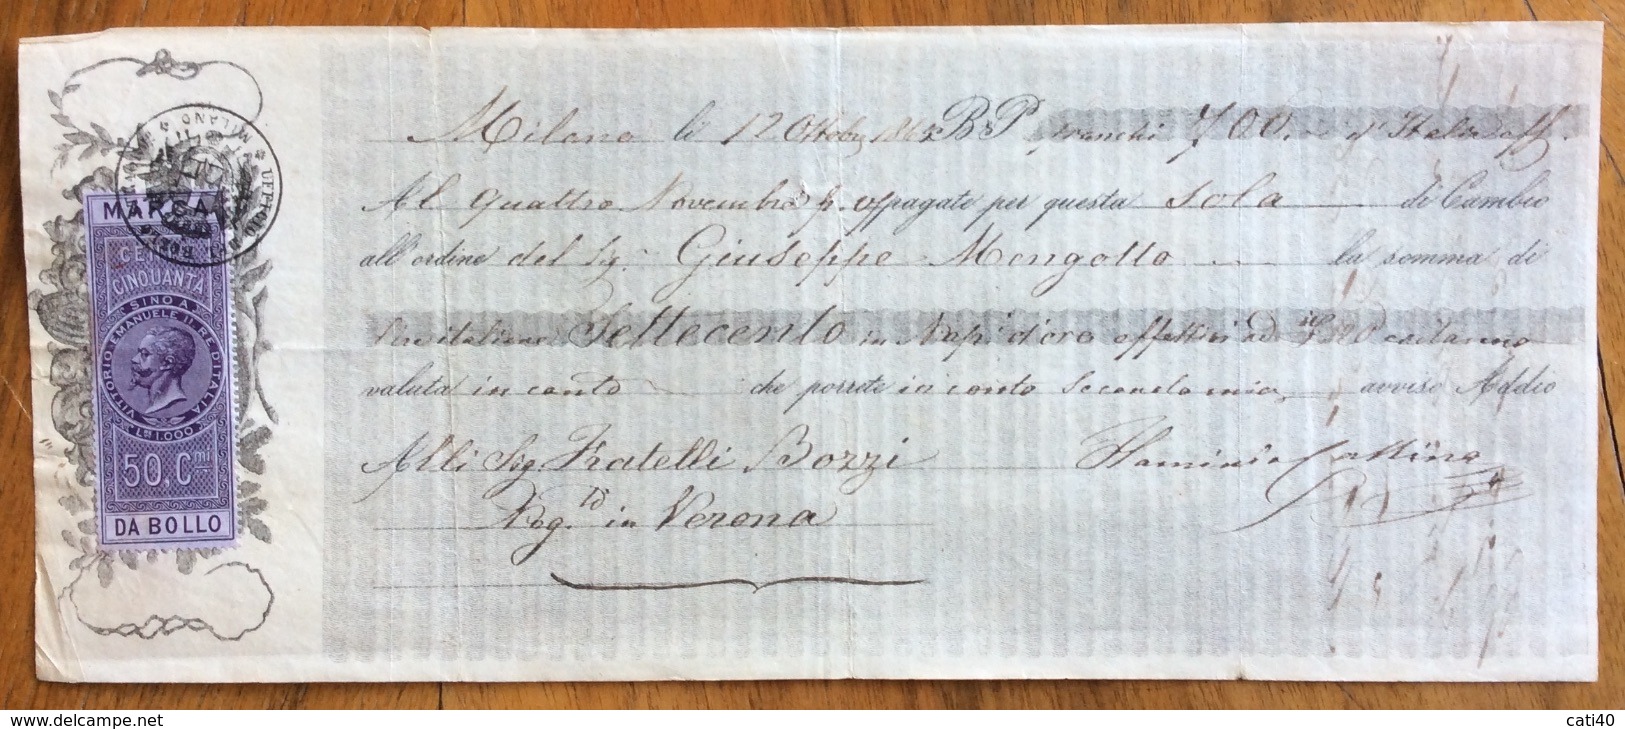 Milano li 12 Ottobre 186 B P franchi 700.- d'Italia eff.
Al quattro Novembre p. v. pagate per questa sola di Cambio
all'ordine del Sig. Giuseppe Mengotto la somma di
Lire italiane Settecento in Nap. d'oro effettivi ad 20 cadauno
valuta in conto che porrete in conto secondo mia avviso Addio
Alli Sig. Fratelli Bozzi
in Verona
MARCA
CENT
CINQUANTA
SINO A
VITTORIO EMANUELE II. RE D'ITALIA
L. 1.000
50.Cmi
DA BOLLO
UFFICIO MILANO
www.delcampe.net
cati40